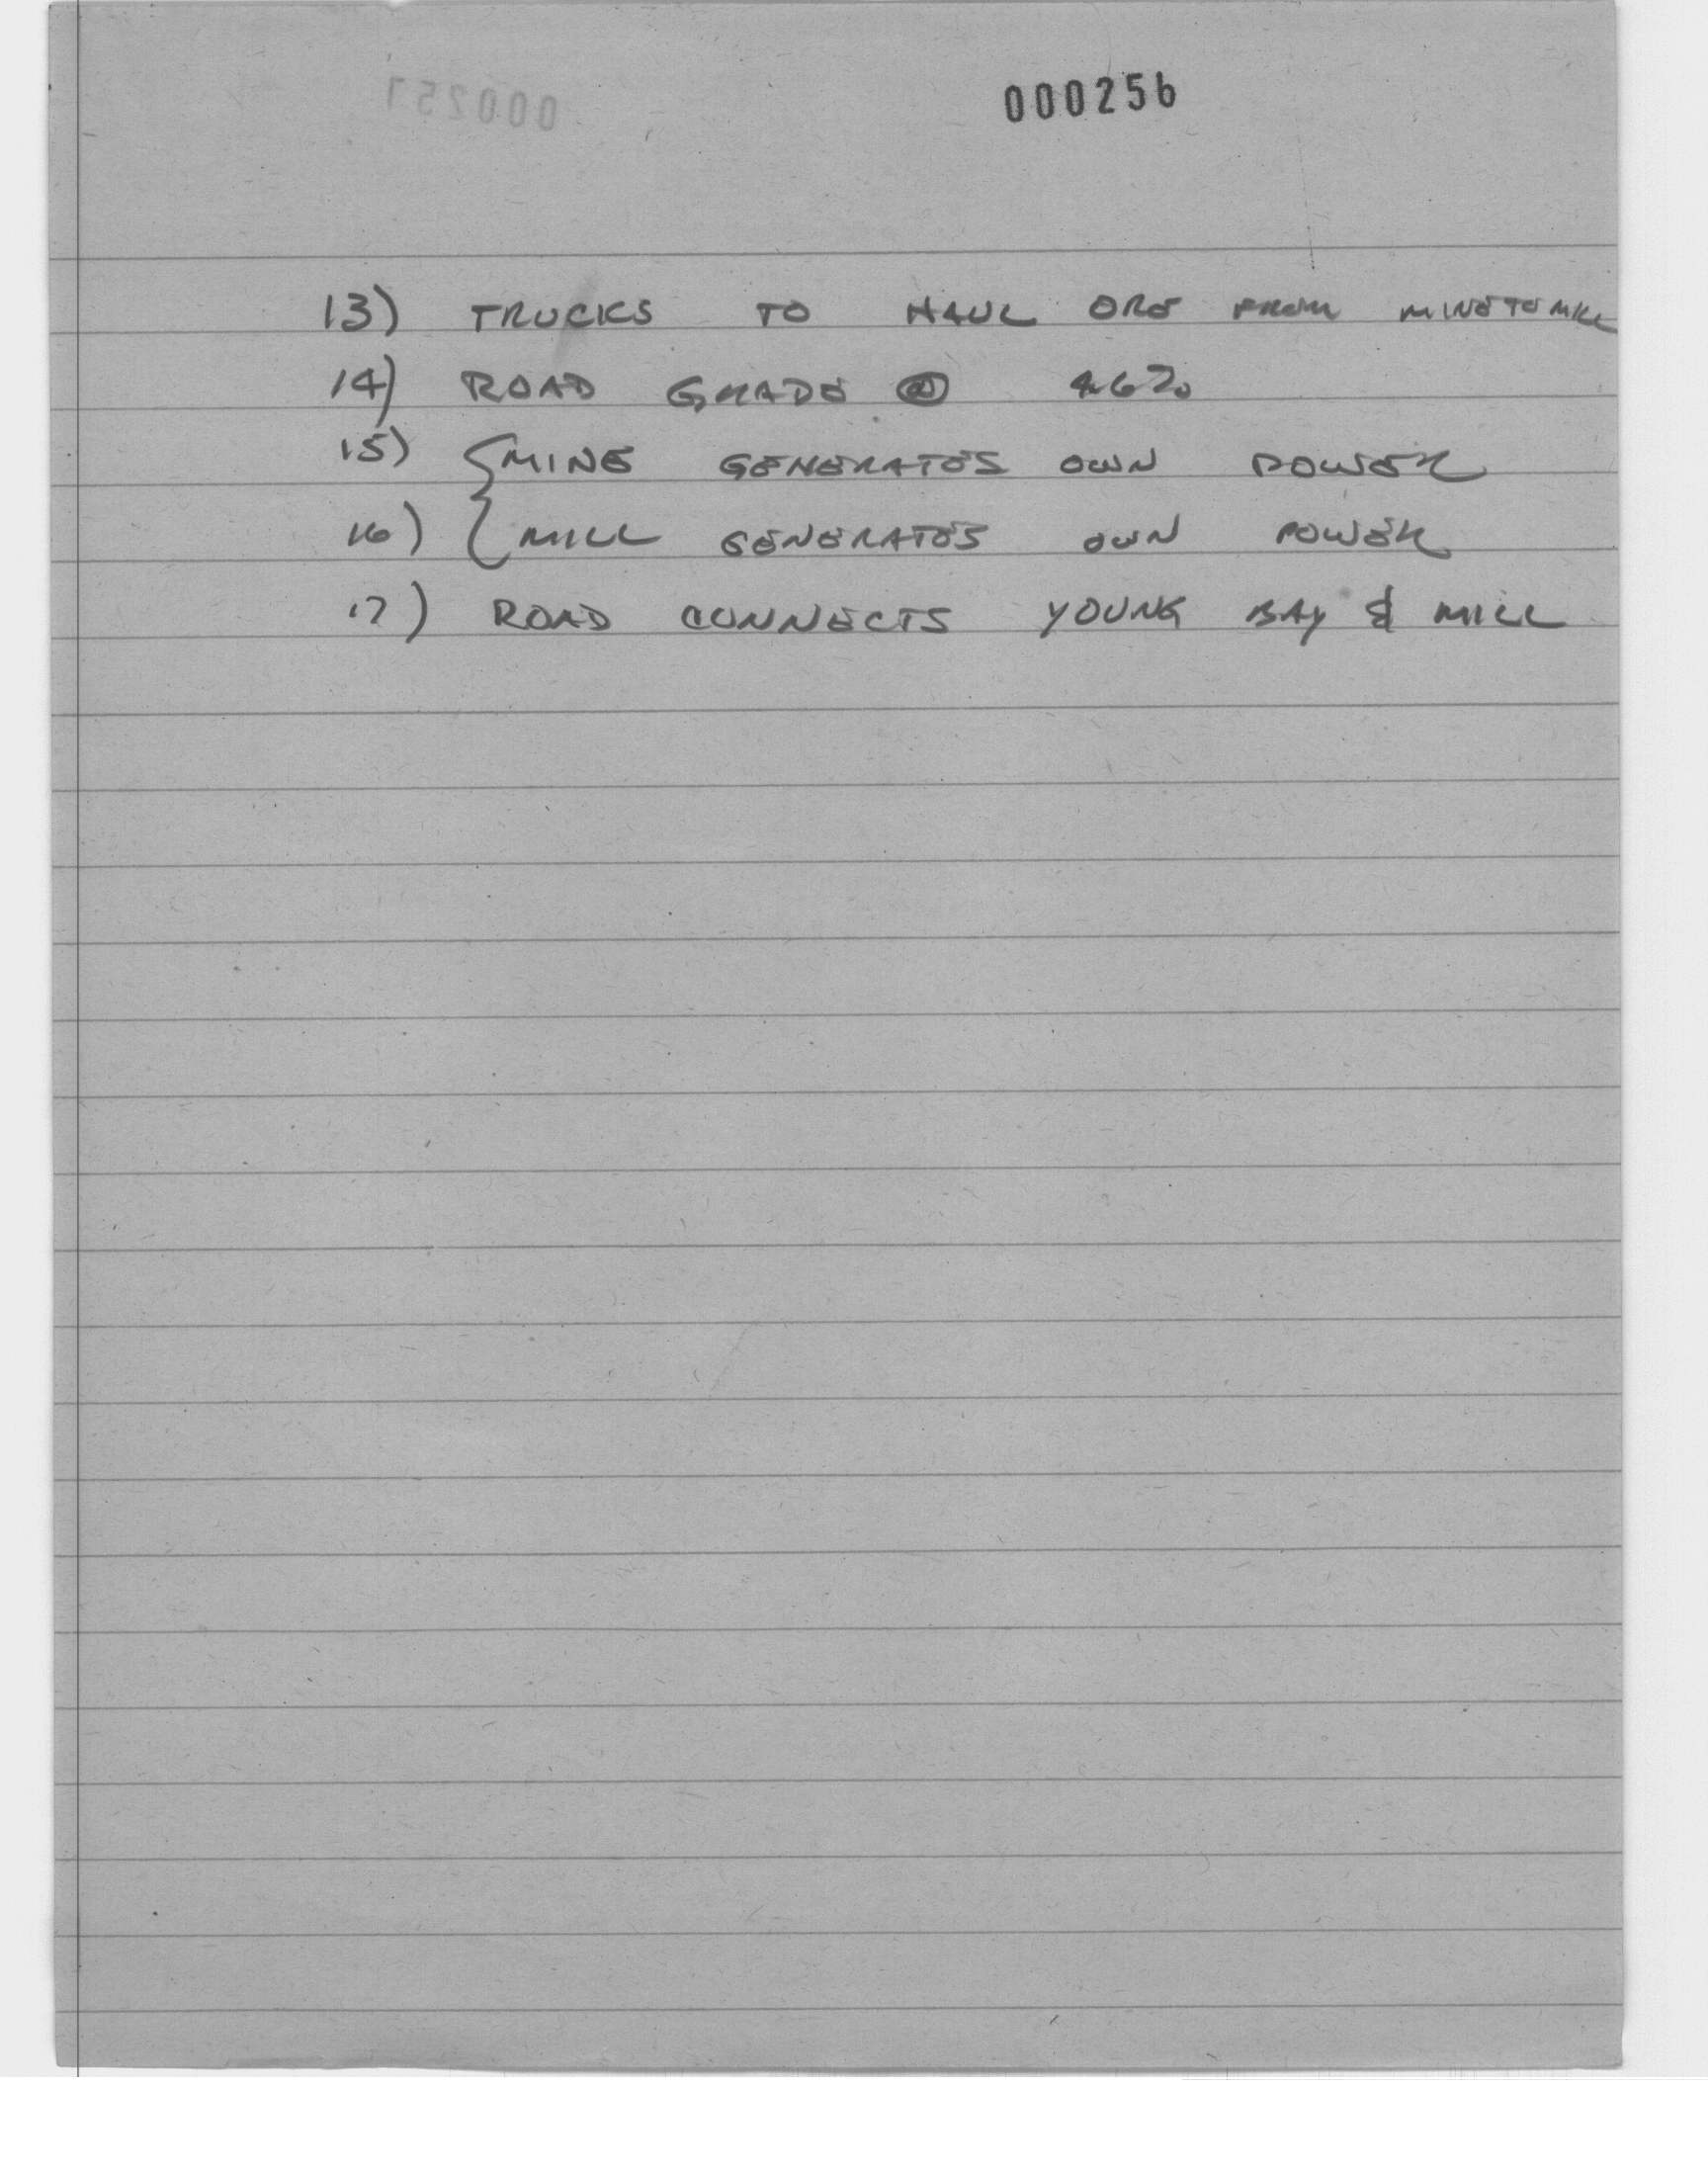 000256
13) TRUCKS TO HAUL ORE FROM MINE TO MILL
14) ROAD GRADE @ 6%
15) { MINE GENERATES OWN POWER
16) { MILL GENERATES OWN POWER
17) ROAD CONNECTS YOUNG BAY & MILL